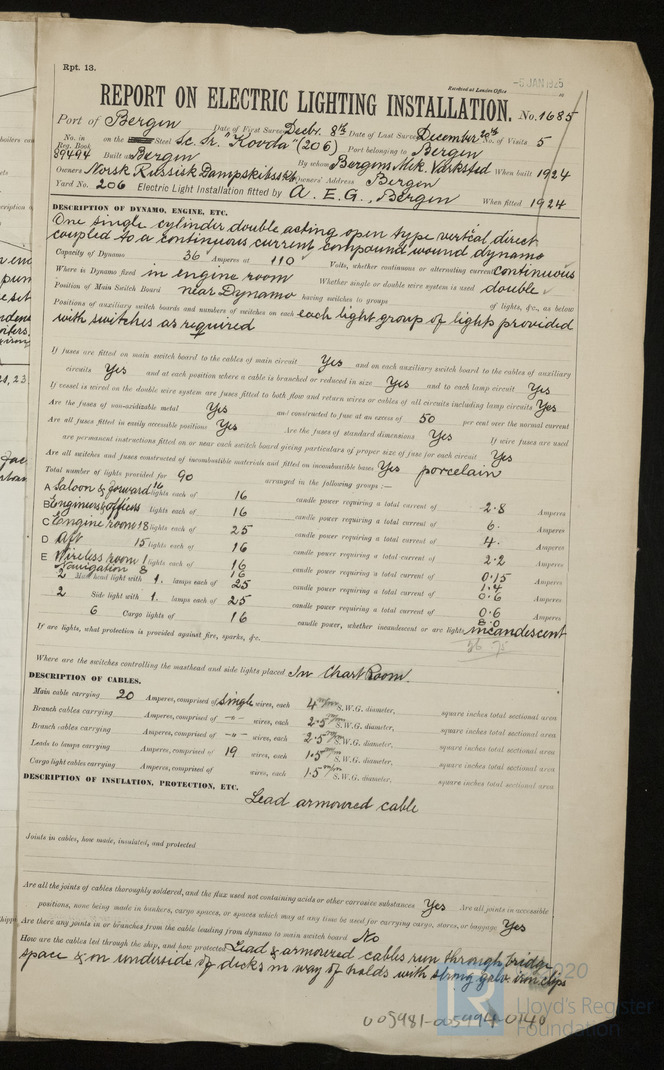 Rpt. 13.
-5 JAN 1925
Received at London Office
REPORT ON ELECTRIC LIGHTING INSTALLATION. No. 1685
Port of Bergen Date of First Survey Decbr. 8th Date of Last Survey December 20th No. of Visits 5
No. in Reg. Book on the Steel Sc. Sr. "Kovda" (206) Port belonging to Bergen
89494 Built at Bergen By whom Bergens Mek. Værksted When built 1924
Owners Norsk Russisk Dampskibsskb Owners' Address Bergen
Yard No. 206 Electric Light Installation fitted by A. E. G., Bergen When fitted 1924
DESCRIPTION OF DYNAMO, ENGINE, ETC.
One single cylinder double acting open type vertical direct
coupled to a continuous current compound wound dynamo
Capacity of Dynamo 36 Amperes at 110 Volts, whether continuous or alternating current continuous
Where is Dynamo fixed in engine room Whether single or double wire system is used double
Position of Main Switch Board near Dynamo having switches to groups of lights, as below
Positions of auxiliary switch boards and numbers of switches on each each light group of lights provided
with switches as required
If fuses are fitted on main switch board to the cables of main circuit Yes and on each auxiliary switch board to the cables of auxiliary
circuits Yes and at each position where a cable is branched or reduced in size Yes and to each lamp circuit Yes
If vessel is wired on the double wire system are fuses fitted to both flow and return wires or cables of all circuits including lamp circuits Yes
Are the fuses of non-oxidizable metal Yes and constructed to fuse at an excess of 50 per cent over the normal current
Are all fuses fitted in easily accessible positions Yes Are the fuses of standard dimensions Yes If wire fuses are used
are permanent instructions fitted on or near each switch board giving particulars of proper size of fuse for each circuit Yes
Are all switches and fuses constructed of incombustible materials and fitted on incombustible bases Yes porcelain
Total number of lights provided for 90 arranged in the following groups :—
A Saloon & forward 16 lights each of 16 candle power requiring a total current of 2.8 Amperes
B Engineers & officers lights each of 16 candle power requiring a total current of 6. Amperes
C Engine room 18 lights each of 25 candle power requiring a total current of 4. Amperes
D Aft 15 lights each of 16 candle power requiring a total current of 2.2 Amperes
E Wireless room 1 lights each of 16 candle power requiring a total current of 0.15 Amperes
Navigation 8 16 1.4
2 Mast head light with 1. lamps each of 25 candle power requiring a total current of 0.6 Amperes
2 Side light with 1. lamps each of 25 candle power requiring a total current of 0.6 Amperes
6 Cargo lights of 16 8.0 candle power, whether incandescent or arc lights incandescent
If arc lights, what protection is provided against fire, sparks, &c.
Where are the switches controlling the masthead and side lights placed In Chart Room.
DESCRIPTION OF CABLES.
Main cable carrying 20 Amperes, comprised of single wires, each 4 m/m S.W.G. diameter, square inches total sectional area
Branch cables carrying Amperes, comprised of -"- wires, each 2.5 m/m S.W.G. diameter, square inches total sectional area
Branch cables carrying Amperes, comprised of -"- wires, each 2.5 m/m S.W.G. diameter, square inches total sectional area
Leads to lamps carrying Amperes, comprised of 19 wires, each 1.5 m/m S.W.G. diameter, square inches total sectional area
Cargo light cables carrying Amperes, comprised of wires, each 1.5 m/m S.W.G. diameter, square inches total sectional area
DESCRIPTION OF INSULATION, PROTECTION, ETC.
Lead armoured cable
Joints in cables, how made, insulated, and protected
Are all the joints of cables thoroughly soldered, and the flux used not containing acids or other corrosive substances Yes Are all joints in accessible
positions, none being made in bunkers, cargo spaces, or spaces which may at any time be used for carrying cargo, stores, or baggage Yes
Are there any joints in or branches from the cable leading from dynamo to main switch board No
How are the cables led through the ship, and how protected Lead & armoured cables run through bridge
space & on underside of decks in way of holds with strong galv. iron clips
©2020
LR
Lloyd's Register
Foundation
005981-005994-0140